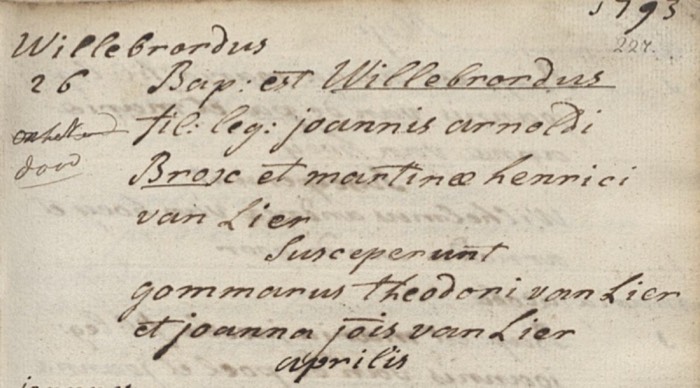 1793
227.
Willebrordus
26 Bap: est Willebrordus
fil: leg: joannis arnoldi
dood
et martinæ henrici
van Lier
Susceperunt
gommarus theodori van Lier
et joanna jois van Lier
aprilis